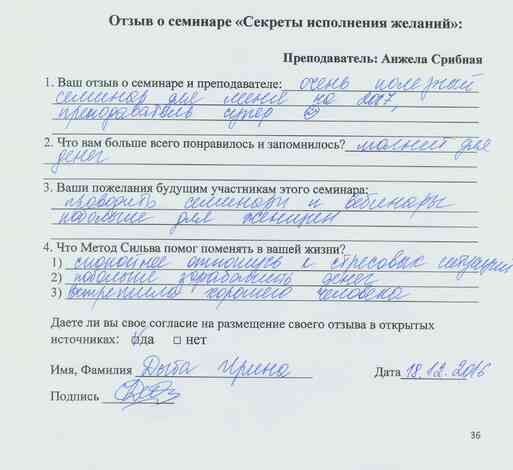 Отзыв о семинаре «Секреты исполнения желаний»:
Преподаватель: Анжела Срибная
1. Ваш отзыв о семинаре и преподавателе: очень полезный
семинар для меня на 2017,
преподаватель супер ☺
2. Что вам больше всего понравилось и запомнилось? для
денег
3. Ваши пожелания будущим участникам этого семинара:
проводить семинары и вебинары
побольше для женщин
4. Что Метод Сильва помог поменять в вашей жизни?
1) спокойнее отношусь к стрессовым ситуациям
2) побольше зарабатывать денег
3) встретила хорошего человека
Даете ли вы свое согласие на размещение своего отзыва в открытых
источниках: ☑да □ нет
Имя, Фамилия Дыба Ирина Дата 18.12.2016
Подпись
36